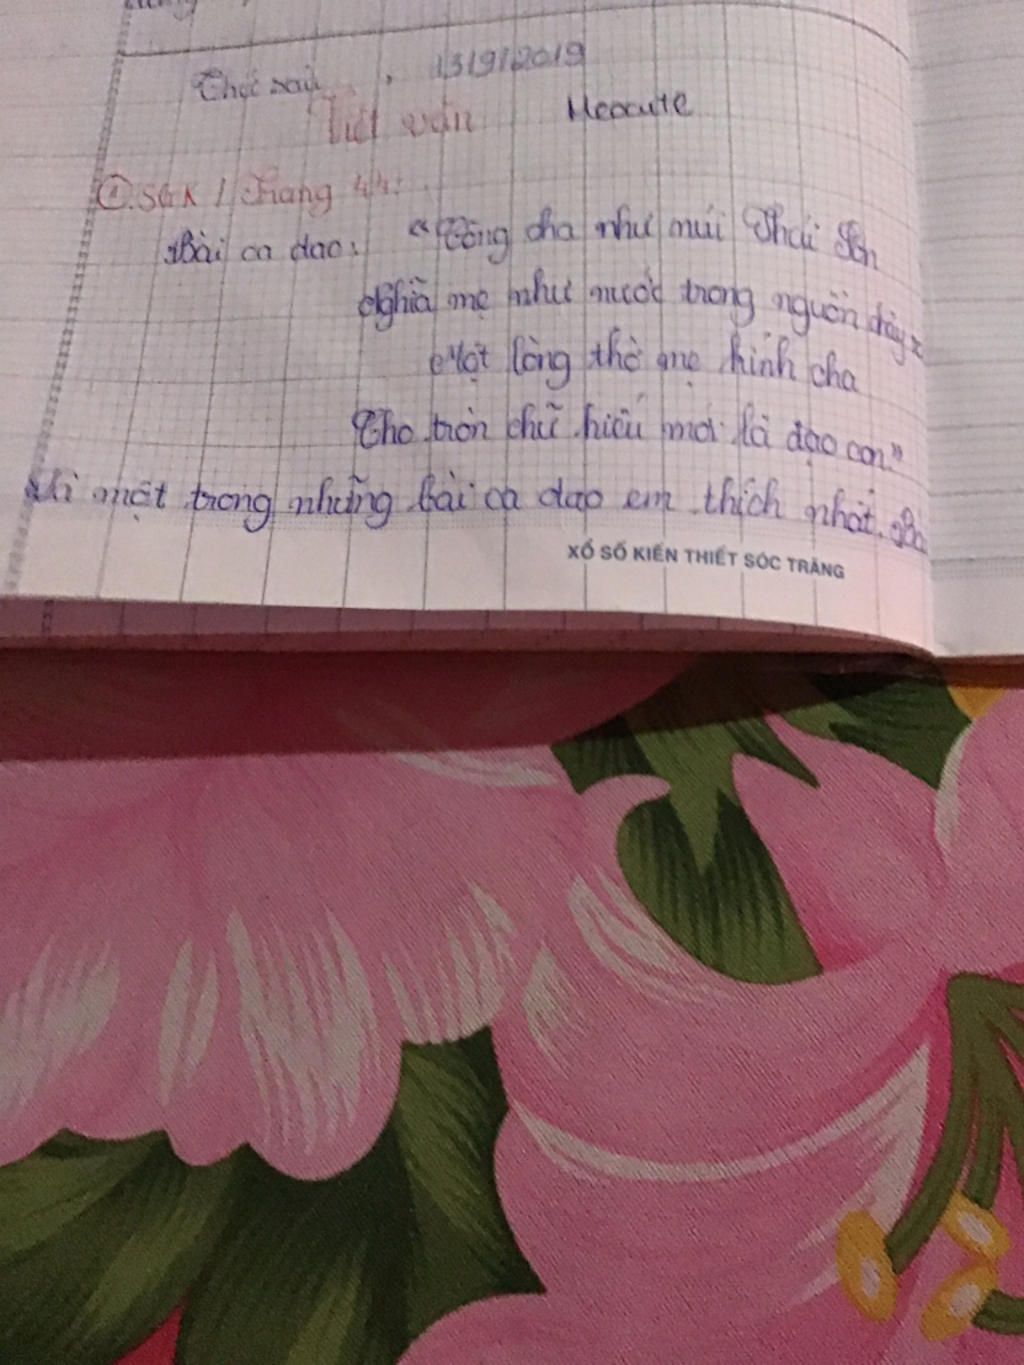 Thứ sáu, 13/9/2019
Tiết văn Meocute
①.SGK / Trang 44:
Bài ca dao: "Công cha như núi Thái Sơn
Nghĩa mẹ như nước trong nguồn chảy ra
Một lòng thờ mẹ kính cha
Cho tròn chữ hiếu mới là đạo con."
một trong những bài ca dao em thích nhất.
XỔ SỐ KIẾN THIẾT SÓC TRĂNG